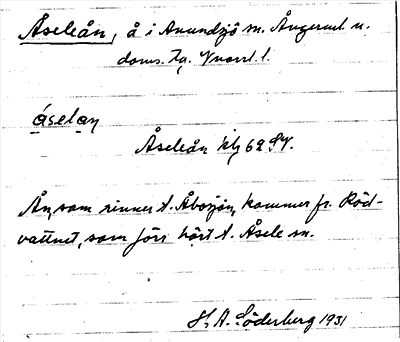 Åseleån, å i Anundsjö sn. Ångerml. n.
doms. hg. Vnorrl. l.
åselan
Åseleån kbl 62 SV.
Ån, som rinner t. Åbosjön, kommer fr. Röd-
vattnet, som förr hört t. Åsele sn.
H. A. Söderberg 1931